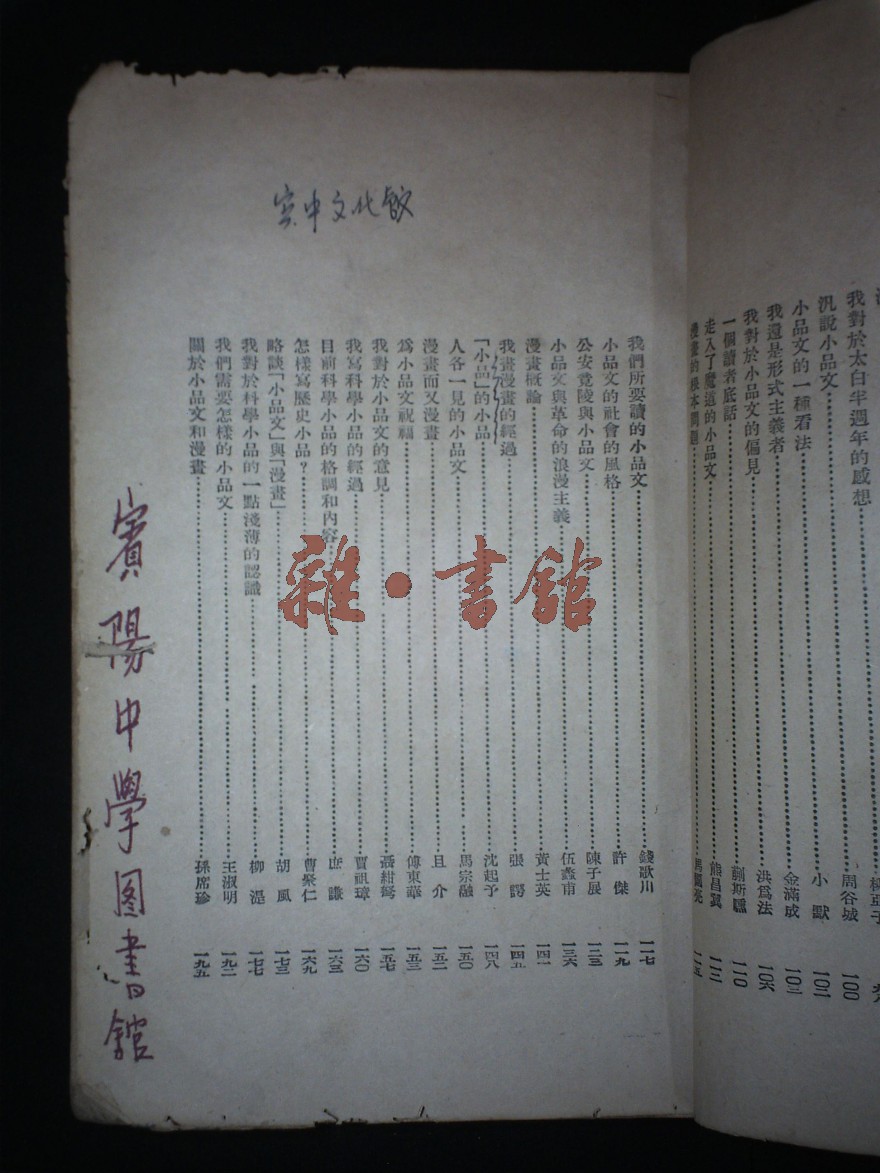 我對於太白半週年的感想……
周谷城 一〇〇
汎說小品文……小默 一〇二
小品文的一種看法……金滿成 一〇三
我還是形式主義者……洪爲法 一〇六
我對於小品文的偏見……
一個讀者底話……
走入了魔道的小品文……熊昌翼 一一二
漫畫的根本問題……
我們所要讀的小品文……錢歌川 一一七
小品文的社會的風格……許傑 一一九
公安竟陵與小品文……陳子展 一二三
小品文與革命的浪漫主義……伍蠡甫 一三六
漫畫概論……黃士英 一四一
我畫漫畫的經過……張諤 一四五
「小品」的小品……沈起予 一四八
人各一見的小品文……馬宗融 一五〇
漫畫而又漫畫……且介 一五二
爲小品文祝福……傅東華 一五三
我對於小品文的意見……聶紺弩 一五七
我寫科學小品的經過……賈祖璋 一六〇
目前科學小品的格調和內容……庶謙 一六三
怎樣寫歷史小品?……曹聚仁 一六九
略談「小品文」與「漫畫」……胡風 一七三
我對於科學小品的一點淺薄的認識……柳湜 一七七
我們需要怎樣的小品文……王淑明 一九二
關於小品文和漫畫……孫席珍 一九五
宾中文化館
賓陽中學图書館
雜·書館